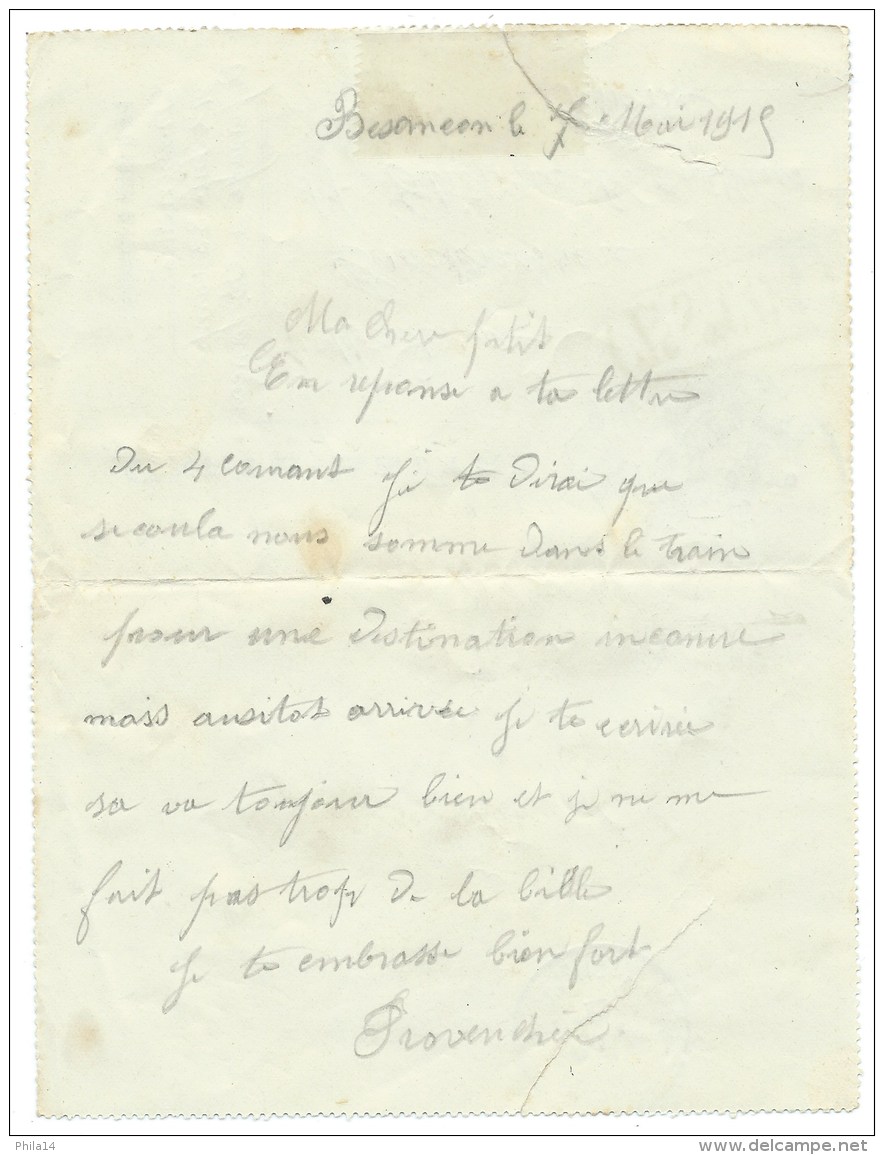 Besancon le Mai 1915
Ma chere petit
En réponse a ta lettre
du 4 courant je te dirai que
se coula nous somme dans le train
pour une destination inconue
mais ausitot arrivée je te ecrirée
sa va toujour bien et je ne me
fait pas trop de la bille
je te embrasse bien fort
Provencher
Phila14
www.delcampe.net